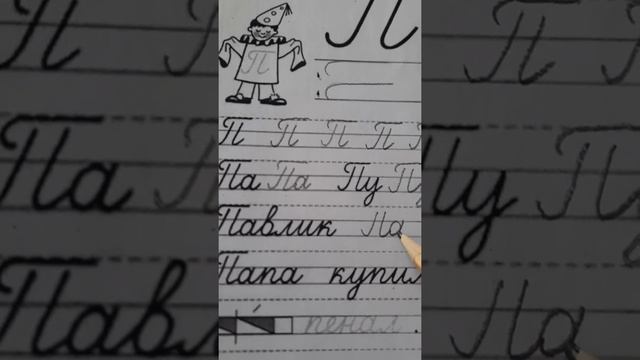 П
П
П П П П П
Па Па Пу Пу
Павлик Па
Папа купил
пенал.